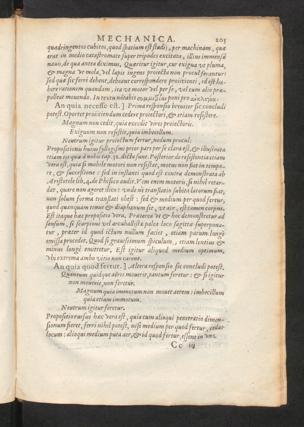 MECHANICA. 205
quadringentos cubitos, quod spatium est studij, per machinam, quæ
erat in medio catastromate super trepodes excitata, illius immensa
naui, de qua antea diximus. Quæritur igitur, cur exigua ut pluma,
& magna ut mola, vel lapis ingens proiecta non procul ferantur:
sed quæ sic ferri debent, debeant correspondere proiicienti, id est ha-
bere rationem quandam, ita vt moter vel per se, vel cum alio pro-
pellent mouendo. In textu notabis
An quia necesse est.] Prima responsio breuiter sic concludi
potest. Oportet proiiciendum cedere proiectori, & etiam resistere.
Magnum non cedit, quia excedit vires proiectoris.
Exiguum non resistit, quia imbecillum.
Neutrum igitur proiectum fertur, nedum procul:
Propositiones huius syllogismi priores pars per se clara est, & illustrata
etiam ex quæ à nobis cap. 31. dicta sunt. Posterior de resistentia etiam
vera est, quia si mobile motori non resistat, motus non fiat in tempo-
re, & successione: sed in instanti quod est contra demonstrata ab
Aristotele lib. 4. de Physico audit. Vim enim motoris, si nihil retar-
det, quare non ageret illico: vnde ubi translatio subiecta latorem fiat,
non solum forma translati obest: sed & medium per quod fertur,
quod quanquam tenue & diaphanum sit, vt aër, est tamen corpus.
Est itaque hæc propositio vera. Præterea ut & hoc demonstretur ad
sensum, si scorpione vel archaballista paleæ loco sagittæ suppona-
tur, præter id quod ictum nullum facit, etiam parum longè
emissa procedet. Quod si grauissimum spiculum, etiam lentius &
minus longè emittetur, Est igitur aliquod medium optimum,
vbi extrema ambo vitio non carent.
An quia quod fertur.] Altera responsio sic concludi potest.
Quantum quidque aëris mouerit, tantum feretur: & si igitur
non mouerit, non feretur.
Magnum quia immotum non mouet aërem: imbecillum
quia etiam immotum.
Neutrum igitur feretur.
Propositio rursus hæc vera est, quia cum aliqui penetratio dimen-
sionum fieret, ferri nihil potest, nisi medium per quod fertur, cedat
locum: alioqui medium puta aër, & id quod fertur, essent in vno
Cc iij